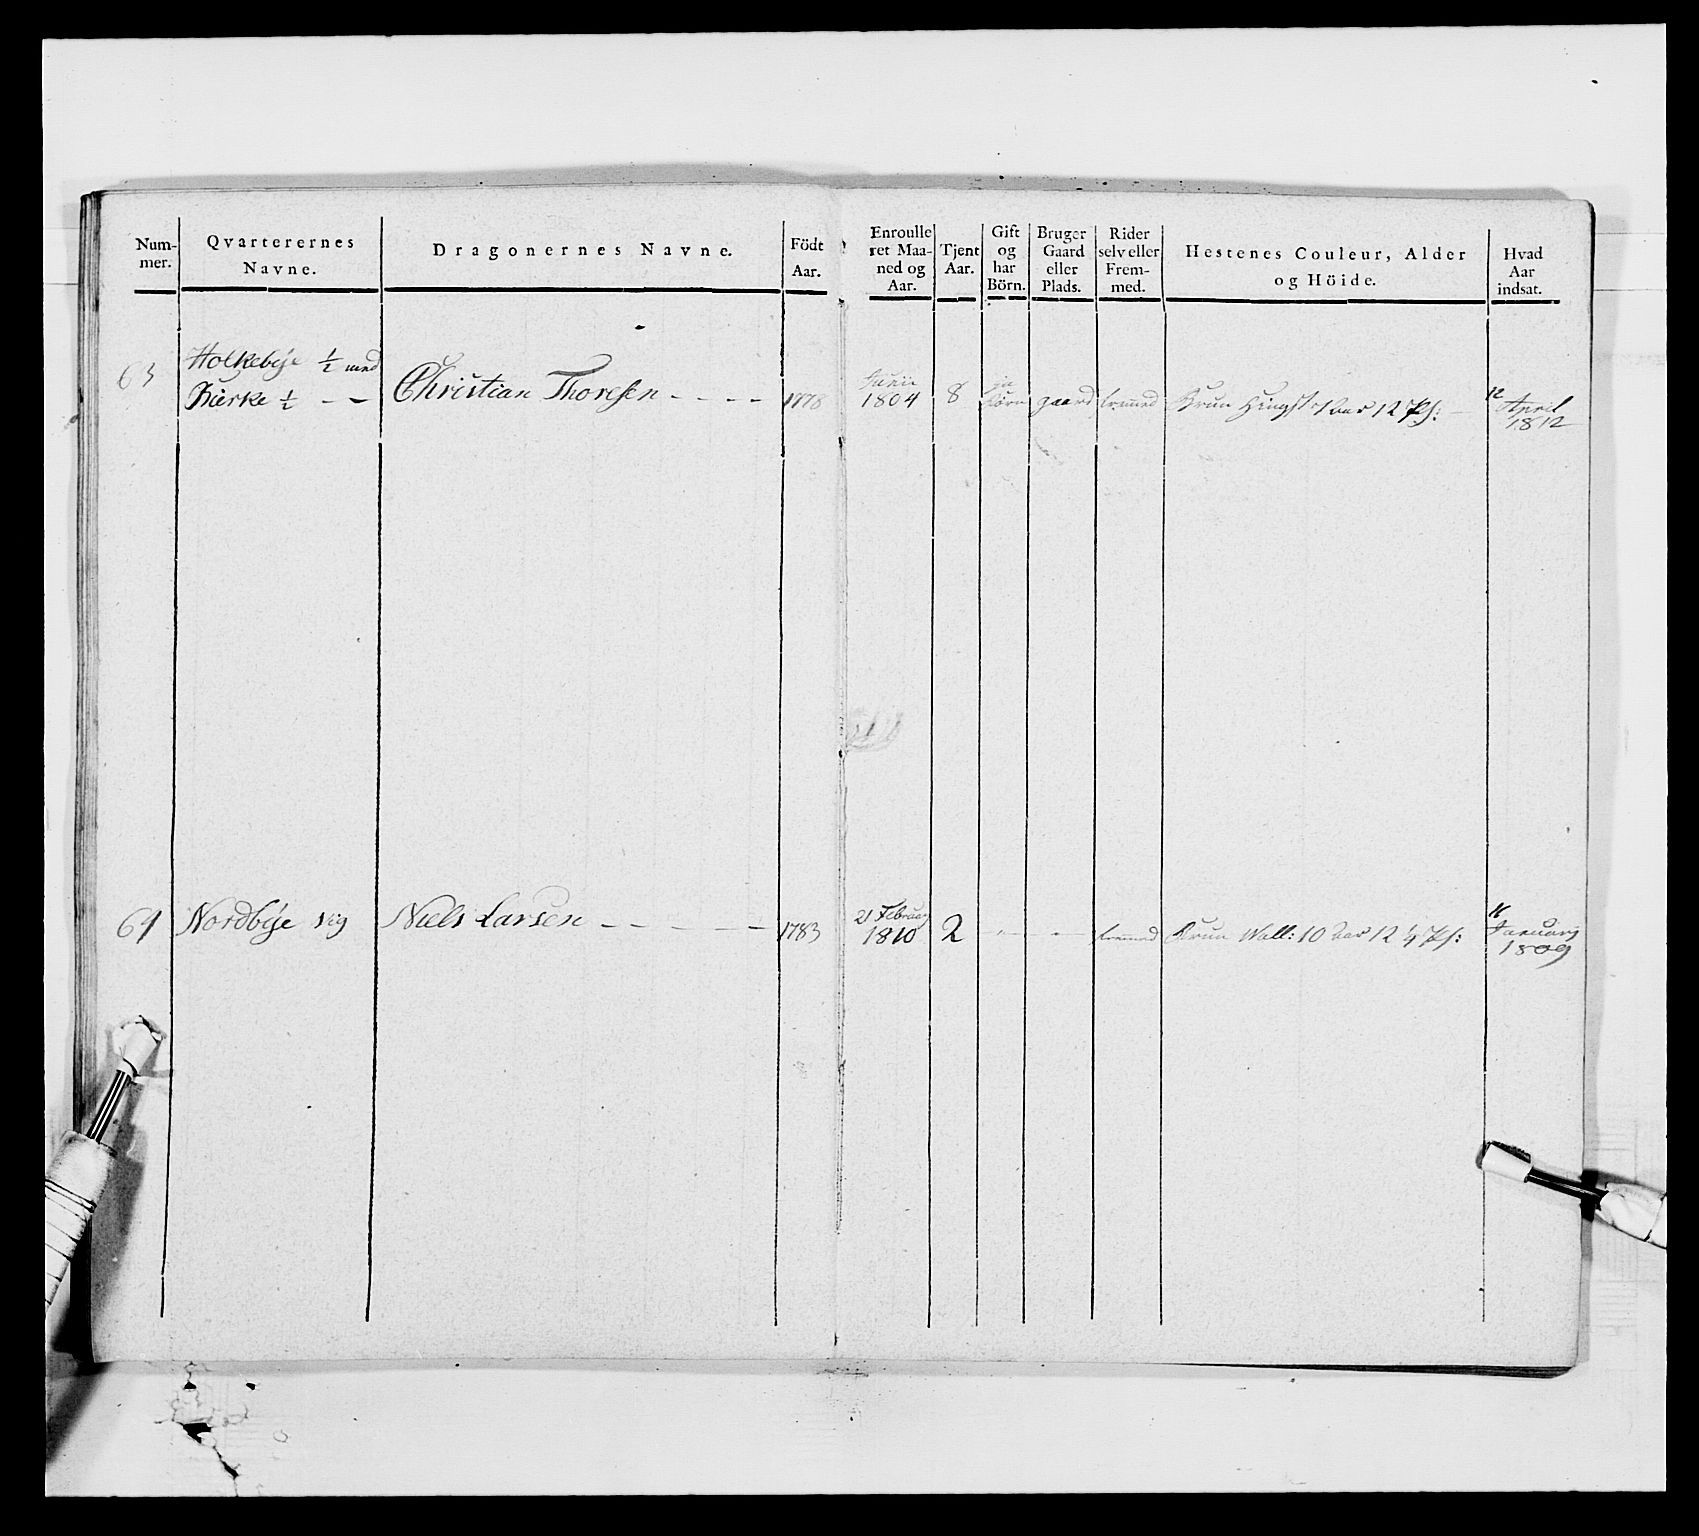 Num-
mer.
Qvarterernes
Navne.
Dragonernes Navne.
Födt
Aar.
Enroulle
ret Maa-
ned og
Aar.
Tjent
Aar.
Gift
og
har
Börn.
Bruger
Gaard
eller
Plads.
Rider
selv eller
Frem-
med.
Hestenes Couleur, Alder
og Höide.
Hvad
Aar
indsat.
63
Holkebÿe ½ med
Bierke ½ - -
Christian Thoresen - - - -
1778
Junii
1804
8
ja
börn
gaard
fremed
Brun Hingst 7 aar 12
12
April
1812
64
Nordbÿe Vig
Niels Larsen - - - - - -
1783
21 Februarj
1810
2
fremed
Brun Wall: 10 aar 12 ¼
16
Januarj
1809